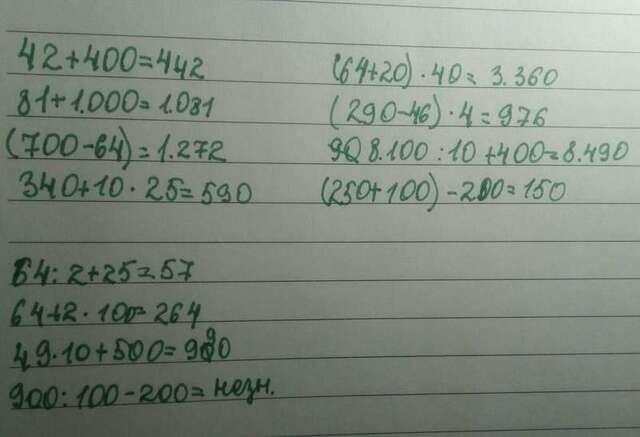 42+400=442
81+1.000=1.081
(700-64)=1.272
340+10·25=590
(64+20)·40=3.360
(290-46)·4=976
8.100:10+400=8.490
(250+100)-200=150
64:2+25=57
64+2·100=264
49·10+500=990
900:100-200=незн.